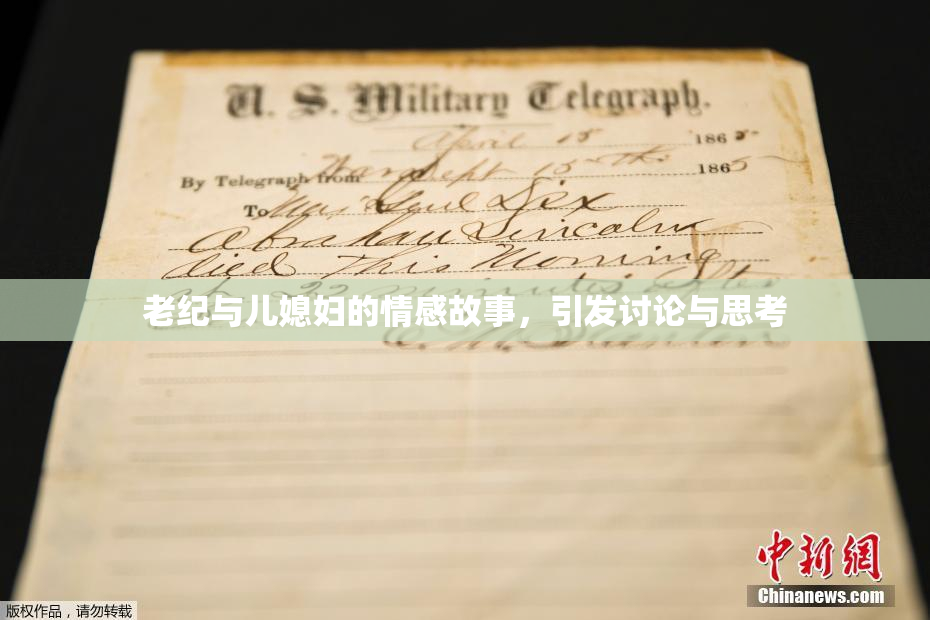 U. S. Military Telegraph.
April 15 1865
By Telegraph from War Dept 15th 1865
To Maj Genl Dix
Abraham Lincoln
died This Morning
at 22 minutes after
老纪与儿媳妇的情感故事，引发讨论与思考
E. M. Stanton
中新网
Chinanews.com
版权作品，请勿转载